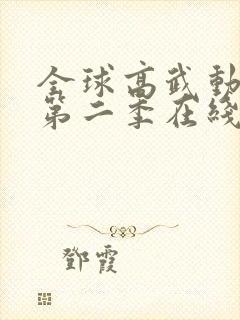 全球高武動
第二季在綫
鄧霞